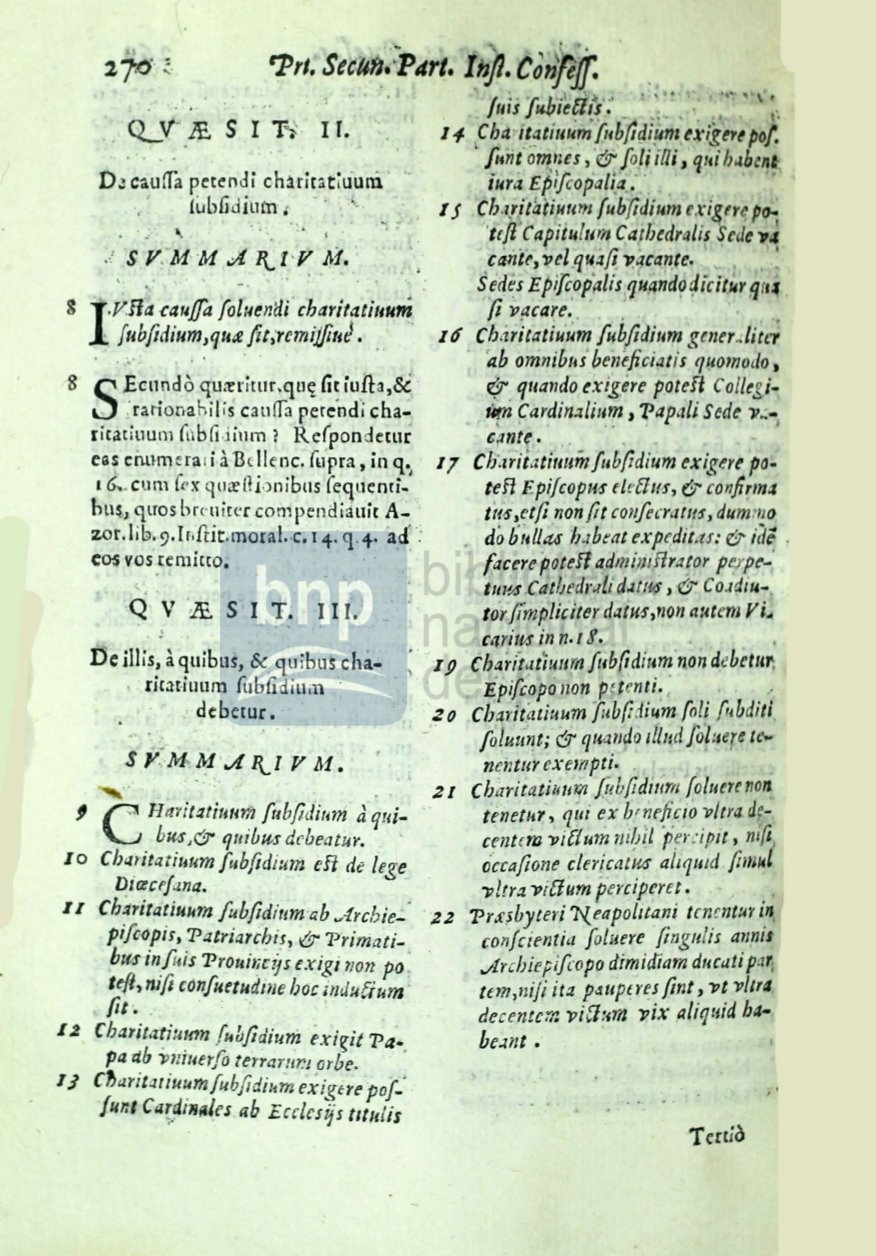 270
Prt. Secun. Part. Inst. Confess.
QVÆSIT. II.
De caussa petendi charitatiuum
subsidium.
SVMMARIVM.
8 IVsta caussa soluendi charitatiuum
subsidium, quæ sit, remissiuè.
8 SEcundò quæritur, quę sit iusta, &
rationabilis caussa petendi cha-
ritatiuum subsidium? Respondetur
eas enumerari à Bellenc. supra, in q.
16. cum sex quæstionibus sequenti-
bus, quos breuiter compendiauit A-
zor. lib. 9. Instit. moral. c. 14. q. 4. ad
eos vos remitto.
QVÆSIT. III.
De illis, à quibus, & quibus cha-
ritatiuum subsidium
debetur.
SVMMARIVM.
9 CHaritatiuum subsidium à qui-
bus, & quibus debeatur.
10 Charitatiuum subsidium est de lege
Diœcesana.
11 Charitatiuum subsidium ab Archie-
piscopis, Patriarchis, & Primati-
bus in suis Prouincijs exigi non po
test, nisi consuetudine hoc inductum
sit.
12 Charitatiuum subsidium exigit Pa-
pa ab vniuerso terrarum orbe.
13 Charitatiuum subsidium exigere pos-
sunt Cardinales ab Ecclesijs titulis
suis subiectis.
14 Charitatiuum subsidium exigere pos.
sunt omnes, & soli illi, qui habent
iura Episcopalia.
15 Charitatiuum subsidium exigere po-
test Capitulum Cathedralis Sede va
cante, vel quasi vacante.
Sedes Episcopalis quando dicitur qua
si vacare.
16 Charitatiuum subsidium generaliter
ab omnibus beneficiatis quomodo,
& quando exigere potest Collegi-
um Cardinalium, Papali Sede va-
cante.
17 Charitatiuum subsidium exigere po-
test Episcopus electus, & confirma
tus, etsi non sit consecratus, dummo
do bullas habeat expeditas: & idē
facere potest administrator perpe-
tuus Cathedrali datus, & Coadiu-
tor simpliciter datus, non autem Vi-
carius in n. 18.
19 Charitatiuum subsidium non debetur
Episcopo non petenti.
20 Charitatiuum subsidium soli subditi
soluunt; & quando illud soluere te-
nentur exempti.
21 Charitatiuum subsidium soluere non
tenetur, qui ex beneficio vltra de-
centem victum nihil percipit, nisi
occasione clericatus aliquid simul
vltra victum perciperet.
22 Præsbyteri Neapolitani tenentur in
conscientia soluere singulis annis
Archiepiscopo dimidiam ducati par
tem, nisi ita pauperes sint, vt vltra
decentem victum vix aliquid ha-
beant.
Tertiò
bnp